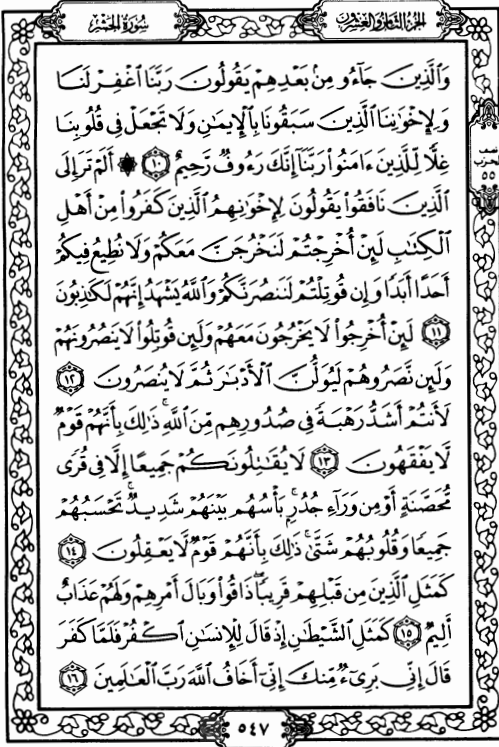 الجزء الثامن والعشرون
سورة الحشر
وَالَّذِينَ جَآءُو مِنۢ بَعْدِهِمْ يَقُولُونَ رَبَّنَا ٱغْفِرْ لَنَا
وَلِإِخْوَٰنِنَا ٱلَّذِينَ سَبَقُونَا بِٱلْإِيمَٰنِ وَلَا تَجْعَلْ فِى قُلُوبِنَا
غِلًّا لِّلَّذِينَ ءَامَنُوا۟ رَبَّنَآ إِنَّكَ رَءُوفٌ رَّحِيمٌ ١٠ ۞ أَلَمْ تَرَ إِلَى
نصف
الحزب
٥٥
ٱلَّذِينَ نَافَقُوا۟ يَقُولُونَ لِإِخْوَٰنِهِمُ ٱلَّذِينَ كَفَرُوا۟ مِنْ أَهْلِ
ٱلْكِتَٰبِ لَئِنْ أُخْرِجْتُمْ لَنَخْرُجَنَّ مَعَكُمْ وَلَا نُطِيعُ فِيكُمْ
أَحَدًا أَبَدًا وَإِن قُوتِلْتُمْ لَنَنصُرَنَّكُمْ وَٱللَّهُ يَشْهَدُ إِنَّهُمْ لَكَٰذِبُونَ
١١ لَئِنْ أُخْرِجُوا۟ لَا يَخْرُجُونَ مَعَهُمْ وَلَئِن قُوتِلُوا۟ لَا يَنصُرُونَهُمْ
وَلَئِن نَّصَرُوهُمْ لَيُوَلُّنَّ ٱلْأَدْبَٰرَ ثُمَّ لَا يُنصَرُونَ ١٢
لَأَنتُمْ أَشَدُّ رَهْبَةً فِى صُدُورِهِم مِّنَ ٱللَّهِ ۚ ذَٰلِكَ بِأَنَّهُمْ قَوْمٌ
لَّا يَفْقَهُونَ ١٣ لَا يُقَٰتِلُونَكُمْ جَمِيعًا إِلَّا فِى قُرًى
مُّحَصَّنَةٍ أَوْ مِن وَرَآءِ جُدُرٍۭ ۚ بَأْسُهُم بَيْنَهُمْ شَدِيدٌ ۚ تَحْسَبُهُمْ
جَمِيعًا وَقُلُوبُهُمْ شَتَّىٰ ۚ ذَٰلِكَ بِأَنَّهُمْ قَوْمٌ لَّا يَعْقِلُونَ ١٤
كَمَثَلِ ٱلَّذِينَ مِن قَبْلِهِمْ قَرِيبًا ۖ ذَاقُوا۟ وَبَالَ أَمْرِهِمْ وَلَهُمْ عَذَابٌ
أَلِيمٌ ١٥ كَمَثَلِ ٱلشَّيْطَٰنِ إِذْ قَالَ لِلْإِنسَٰنِ ٱكْفُرْ فَلَمَّا كَفَرَ
قَالَ إِنِّى بَرِىٓءٌ مِّنكَ إِنِّىٓ أَخَافُ ٱللَّهَ رَبَّ ٱلْعَٰلَمِينَ ١٦
٥٤٧